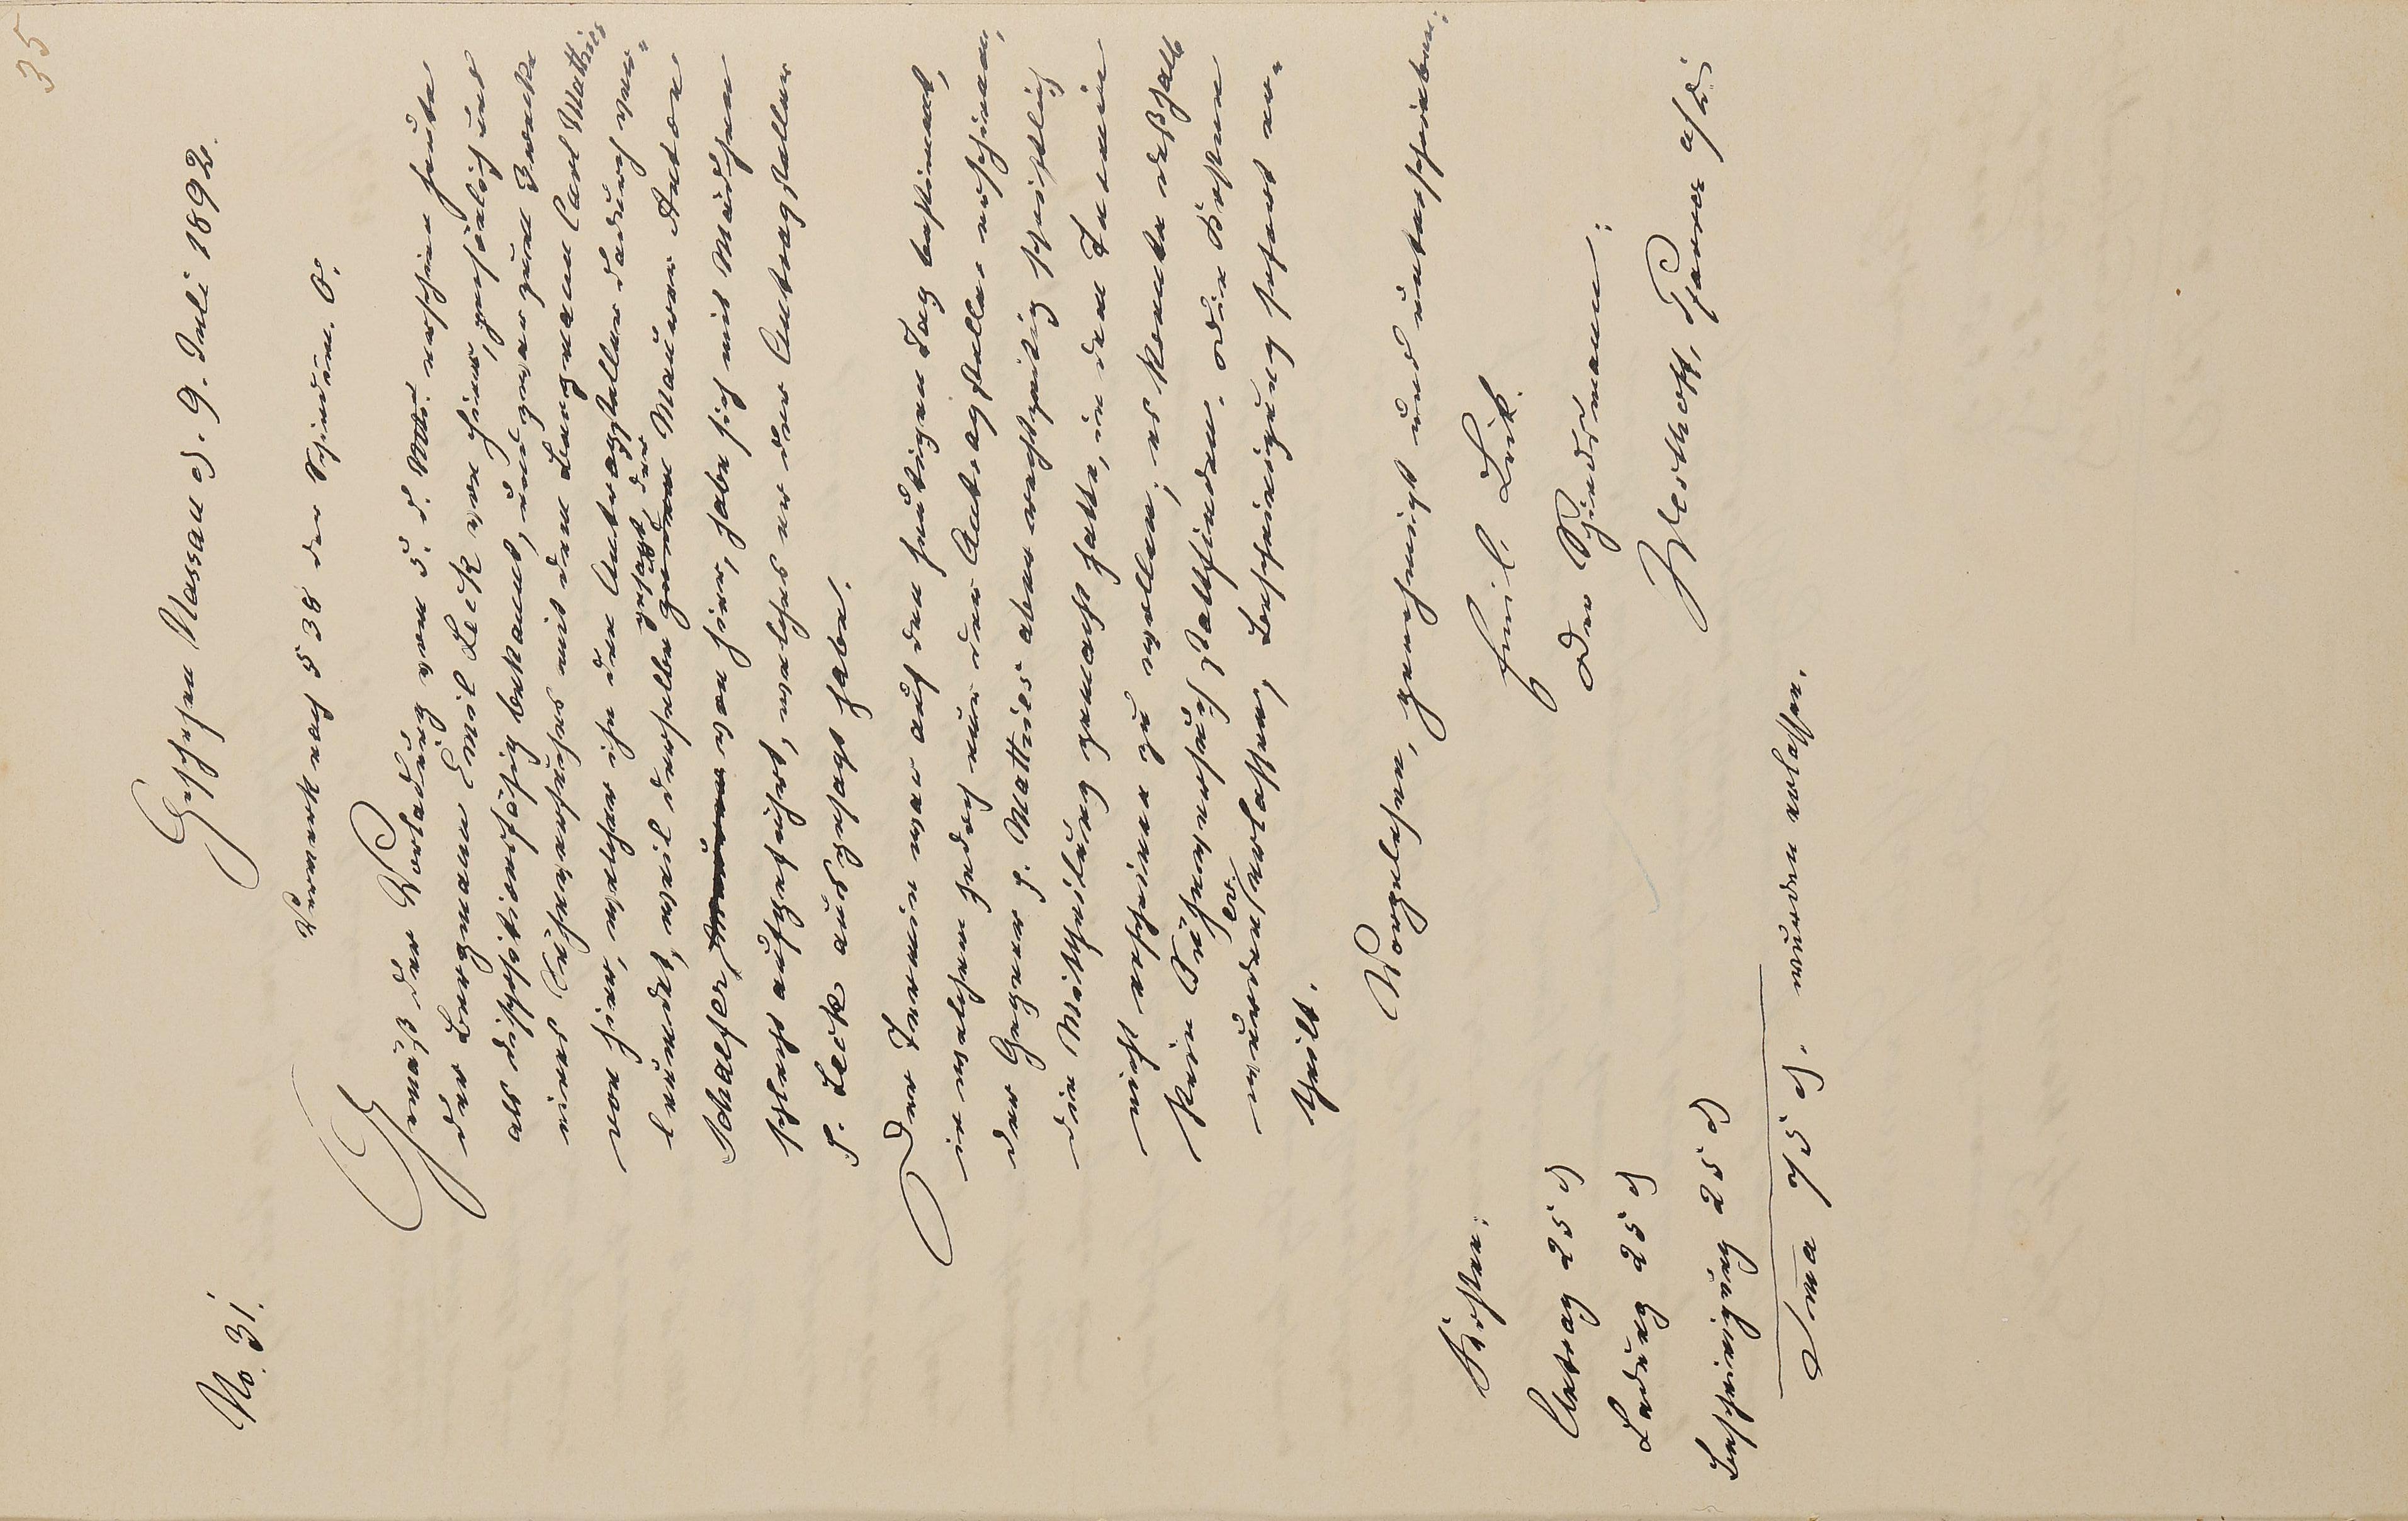 35
No. 31.
Geschehen Nassau d. 9. Juli 1892.
Vermerk nach § 38 der Schiedsm. O.
Gemäß der Vorladung vom 5. d. Mts. erschien heute
der Bergmann Emil Leick von hier, persönlich und
als dispositionsfähig bekannt, und zwar zum Zwecke
eines Sühneversuches mit dem Bergmann Carl Matthies
von hier, welcher ihn den Antragsteller dadurch ver-
leumdet, weil derselbe gesagt, der zu dem Maurer Anton
Schaefer von hier, habe sich mit Mädchen
schlecht aufgeführt, welches er der Antragsteller
p. Leick ausgesagt habe.
Der Termin war auf den heutigen Tag bestimmt,
in welchem jedoch nur der Antragsteller erschienen,
der Gegner p. Matthies aber rechtzeitig schriftlich
die Mittheilung gemacht hatte, in dem Termin
nicht erscheinen zu wollen; es konnte deßhalb
kein Sühneversuch stattfinden. Die Kosten
wurden erlassen, Bescheinigung sofort er-
theilt.
Vorgelesen, genehmigt und unterschrieben:
Emil Leik.
Der Schiedsmann:
Kosten:
Antrag 25 d
Ladung 25 d
Bescheinigung 25 d
Sma 75 d. wurden erlassen.